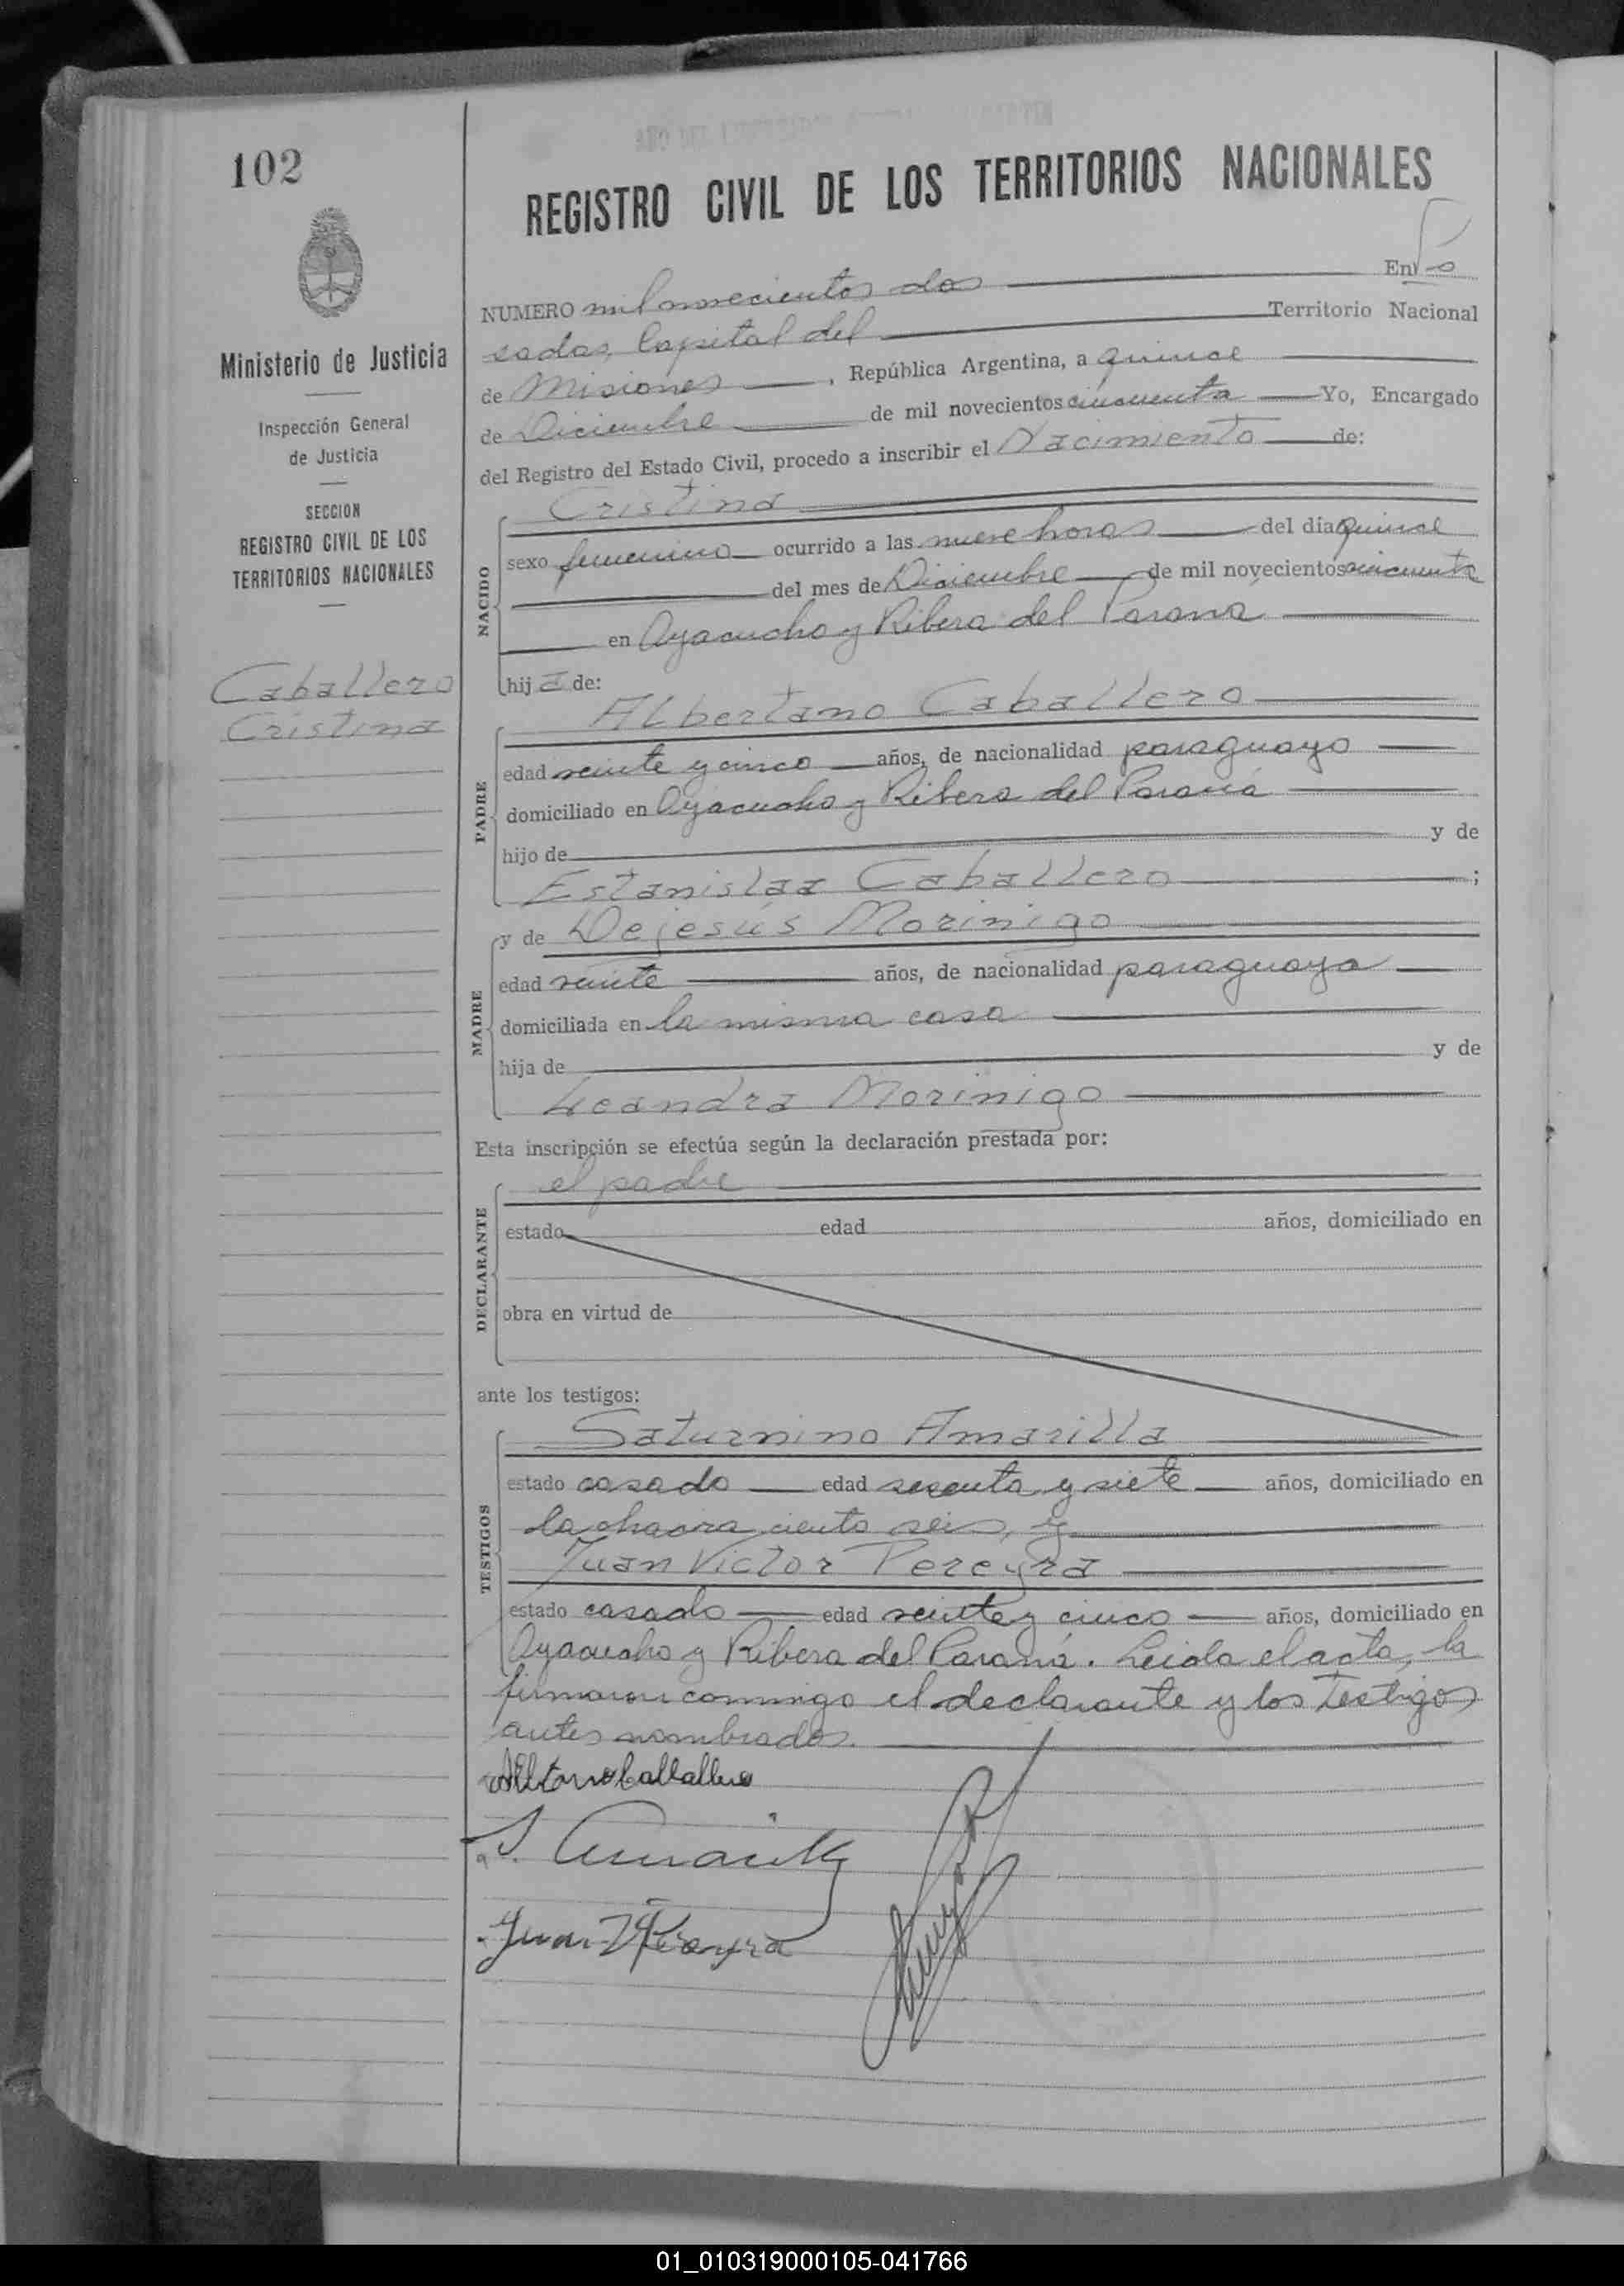 102
REGISTRO CIVIL DE LOS TERRITORIOS NACIONALES
NUMERO mil novecientos dos En Po
sadas, Capital del Territorio Nacional
de Misiones, República Argentina, a quince
de Diciembre de mil novecientos cincuenta Yo, Encargado
del Registro del Estado Civil, procedo a inscribir el Nacimiento de:
Ministerio de Justicia
Inspección General
de Justicia
SECCION
REGISTRO CIVIL DE LOS
TERRITORIOS NACIONALES
Caballero
Cristina
NACIDO
Cristina
sexo femenino ocurrido a las nueve horas del día quince
del mes de Diciembre de mil novecientos cincuenta
en Ayacucho y Ribera del Paraná
hija de:
PADRE
Albertano Caballero
edad veinte y cinco años, de nacionalidad paraguayo
domiciliado en Ayacucho y Ribera del Paraná
hijo de y de
Estanislaa Caballero ;
MADRE
y de Dejesús Morinigo
edad veinte años, de nacionalidad paraguaya
domiciliada en la misma casa
hija de y de
Leandra Morinigo
Esta inscripción se efectúa según la declaración prestada por:
DECLARANTE
el padre
estado edad años, domiciliado en
obra en virtud de
ante los testigos:
TESTIGOS
Saturnino Amarilla
estado casado edad sesenta y siete años, domiciliado en
la chacra ciento seis, y
Juan Victor Pereyra
estado casado edad veinte y cinco años, domiciliado en
Ayacucho y Ribera del Paraná. Leida el acta, la
firmaron conmigo el declarante y los testigos
antes nombrados.
S. Amarilla
Juan V Pereyra
01_010319000105-041766